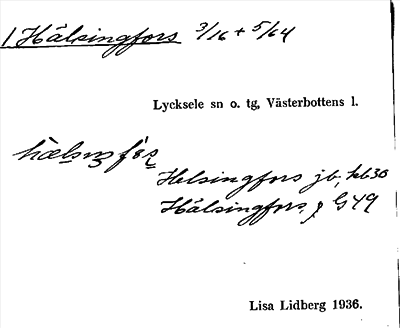 1 Hälsingfors 3/16 + 5/64
Lycksele sn o. tg, Västerbottens l.
Helsingfors jb, hb30
Hälsingfors, g G49
Lisa Lidberg 1936.